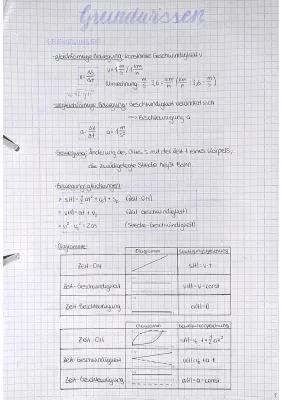 Grundwissen
1. BEWEGUNGEN
· gleichförmige Bewegung: konstante Geschwindigkeit v
v = Δs/Δt v = 1 m/s / 1 km/h
Umrechnung: m/s · 3,6 = km/h (km/h : 3,6 = m/s)
· ungleichförmige Bewegung: Geschwindigkeit verändert sich
→ Beschleunigung a
a = Δv/Δt a = 1 m/s²
· Bewegung: Änderung des Ortes s mit der Zeit t eines Körpers,
die zurückgelegte Strecke heißt Bahn.
· Bewegungsgleichungen:
s(t) = ½at² + v₀t + s₀ (Zeit-Ort)
v(t) = at + v₀ (Zeit-Geschwindigkeit)
v² - v₀² = 2as (Strecke-Geschwindigkeit)
Diagramme:
Diagramm Bewegungsgleichung
Zeit-Ort s(t) = v·t
Zeit-Geschwindigkeit v(t) = v = const
Zeit-Beschleunigung a(t) = 0
Diagramm Bewegungsgleichung
Zeit-Ort s(t) = v₀·t + ½at²
Zeit-Geschwindigkeit v(t) = v₀ + a·t
Zeit-Beschleunigung a(t) = a = const